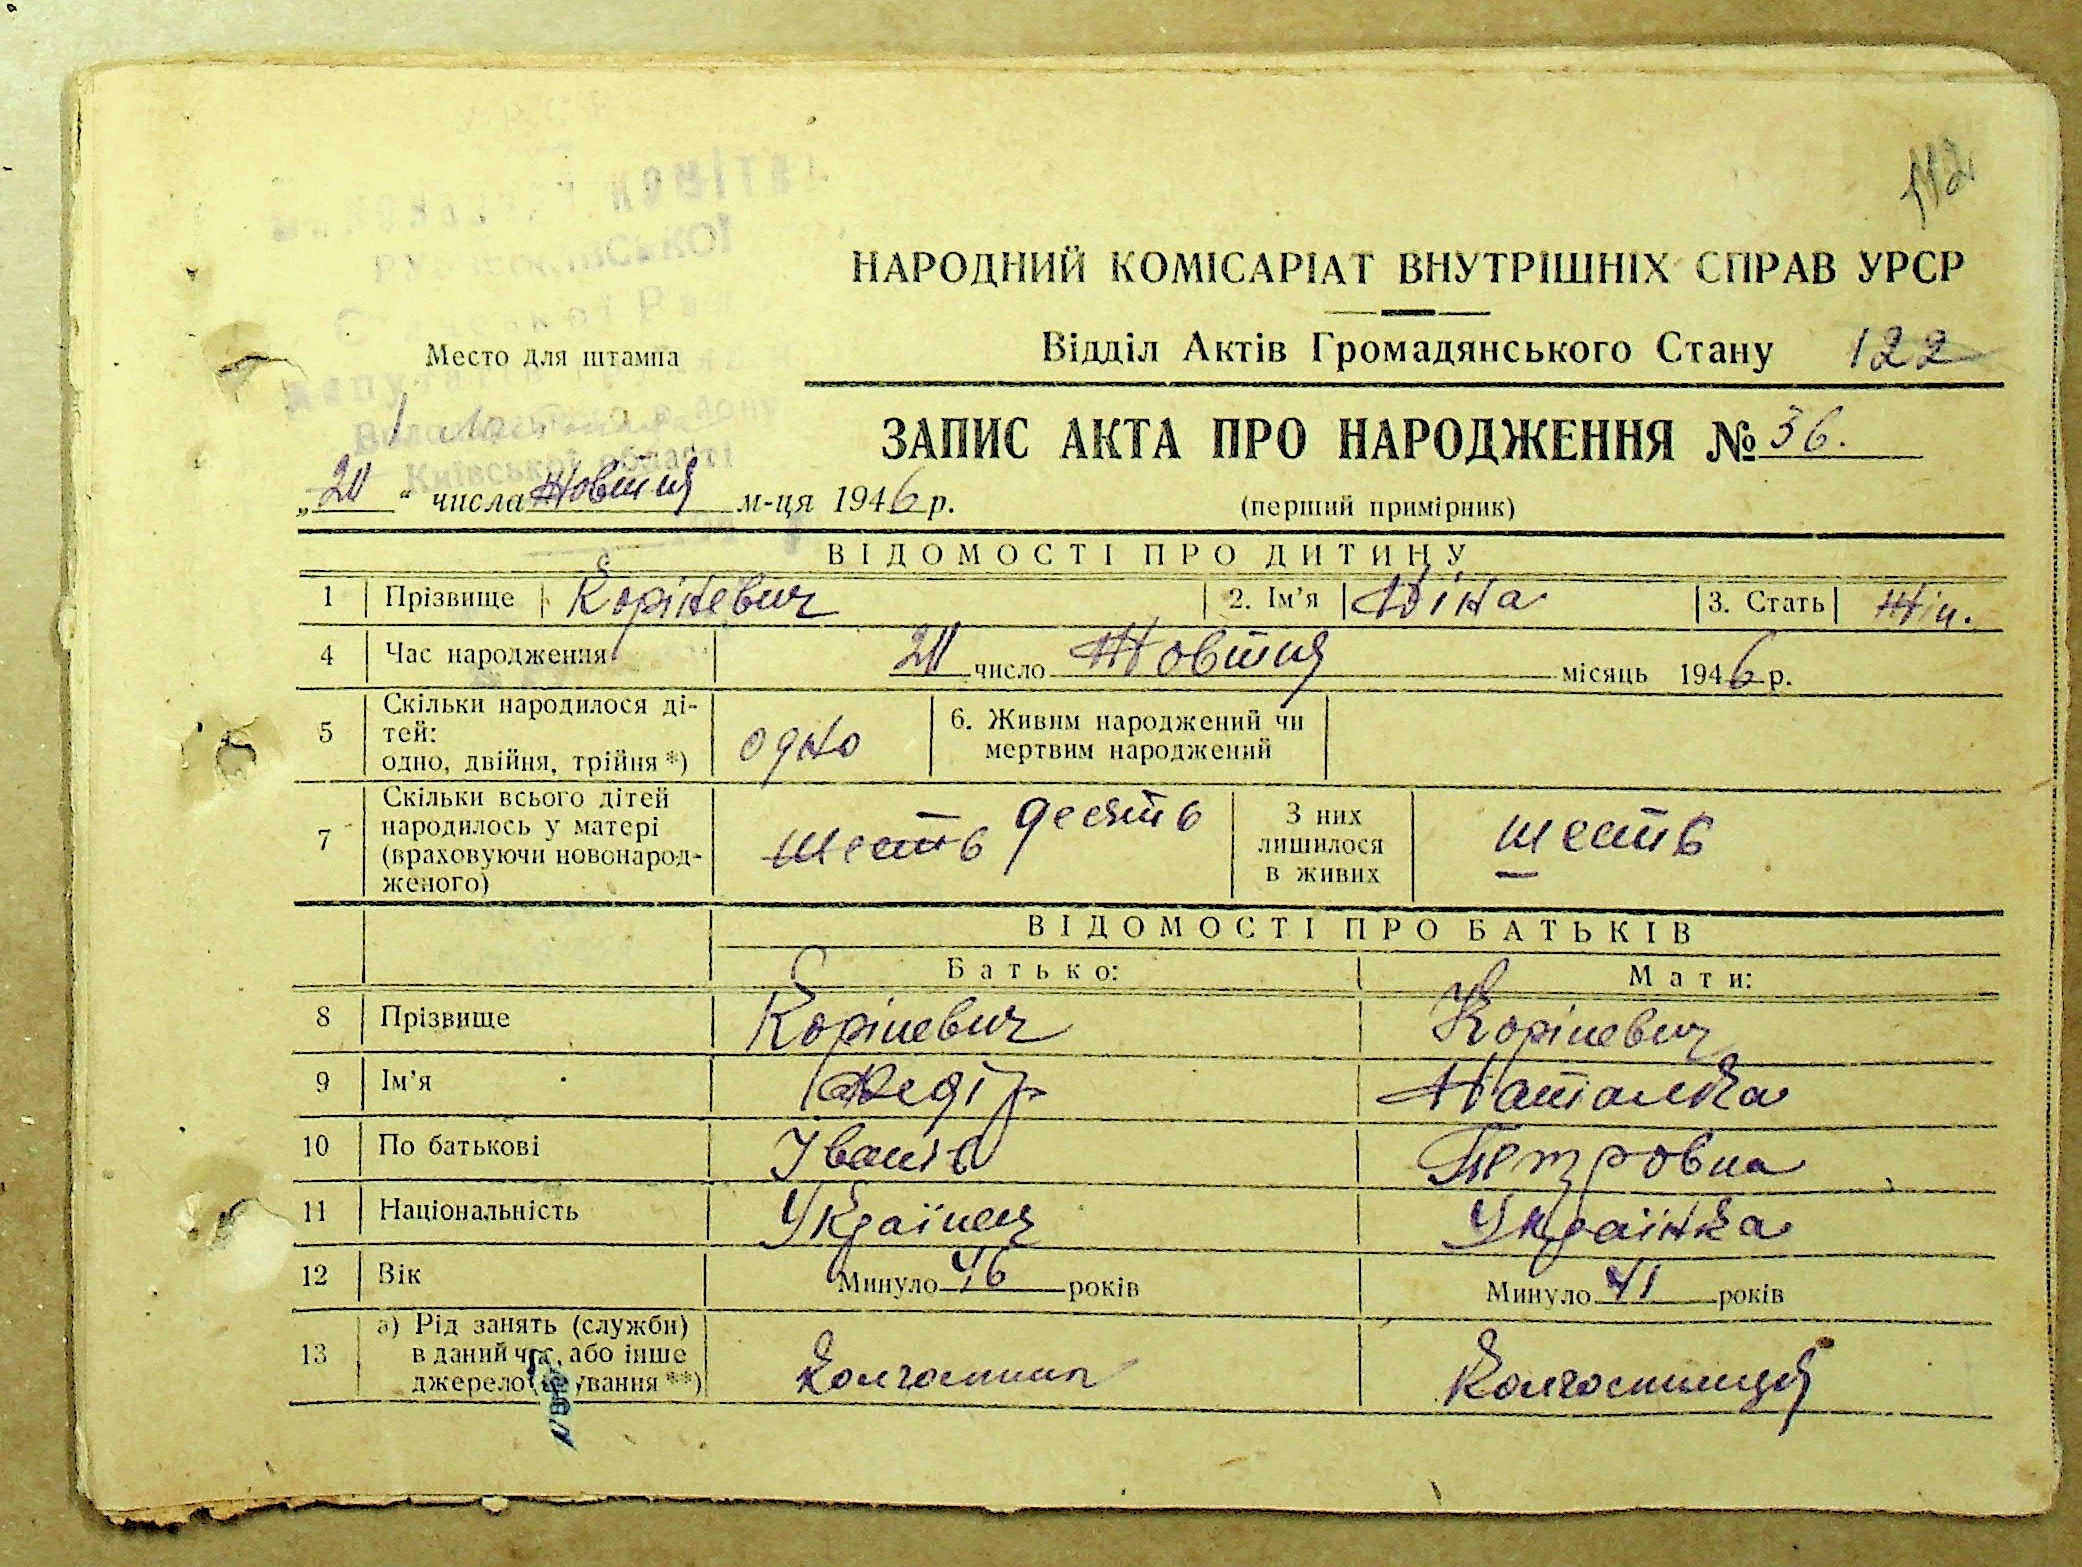 112
НАРОДНИЙ КОМІСАРІАТ ВНУТРІШНІХ СПРАВ УРСР
Место для штампа
Відділ Актів Громадянського Стану 122
ЗАПИС АКТА ПРО НАРОДЖЕННЯ № 36.
Київської області
числа Жовтня м-ця 1946 р.
(перший примірник)
ВІДОМОСТІ ПРО ДИТИНУ
1 Прізвище Коріневич 2. Ім'я Ніна 3. Стать Жін.
4 Час народження число Жовтня місяць 1946 р.
5 Скільки народилося ді-
тей:
одно, двійня, трійня *) одно
6. Живим народжений чи
мертвим народжений
7 Скільки всього дітей
народилось у матері
(враховуючи новонарод-
женого) шесть десять
З них
лишилося
в живих шесть
ВІДОМОСТІ ПРО БАТЬКІВ
Батько: Мати:
8 Прізвище Коріневич Коріневич
9 Ім'я Федір Наталка
10 По батькові Іванів Петровна
11 Національність Українец Українка
12 Вік Минуло 46 років Минуло 41 років
13 а) Рід занять (служби)
в даний час, або інше
джерело існування **) Колгоспник Колгоспниця